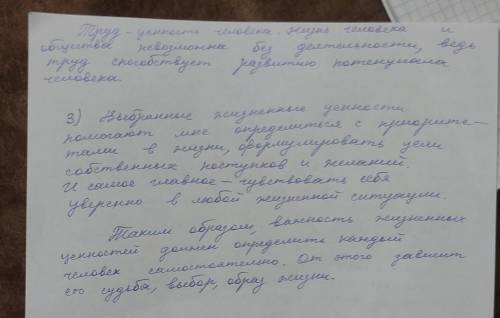 Труд - ценность человека. Жизнь человека и
общества невозможна без деятельности, ведь
труд способствует развитию потенциала
человека.
3) Выбранные жизненные ценности
помогают мне определиться с приорите-
тами в жизни, сформулировать цели
собственных поступков и желаний.
И самое главное - чувствовать себя
уверенно в любой жизненной ситуации.
Таким образом, важность жизненных
ценностей должен определить каждый
человек самостоятельно. От этого зависит
его судьба, выбор, образ жизни.